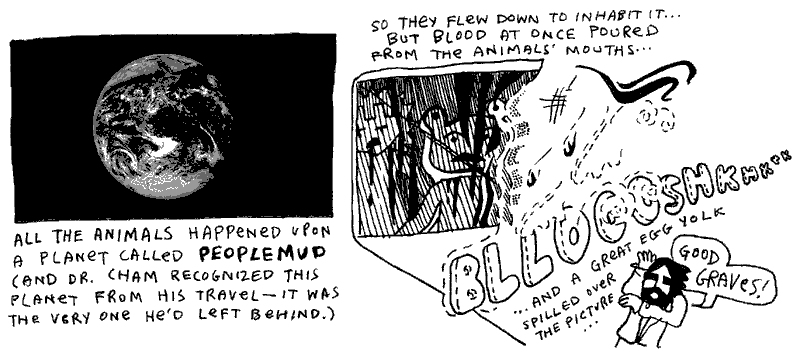 ALL THE ANIMALS HAPPENED UPON
A PLANET CALLED PEOPLEMUD
(AND DR. CHAM RECOGNIZED THIS
PLANET FROM HIS TRAVEL—IT WAS
THE VERY ONE HE'D LEFT BEHIND.)
SO THEY FLEW DOWN TO INHABIT IT...
BUT BLOOD AT ONCE POURED
FROM THE ANIMALS' MOUTHS...
BLLOCUSHKHKKK
...AND A GREAT EGG YOLK
SPILLED OVER
THE PICTURE
...
GOOD
GRAVES!